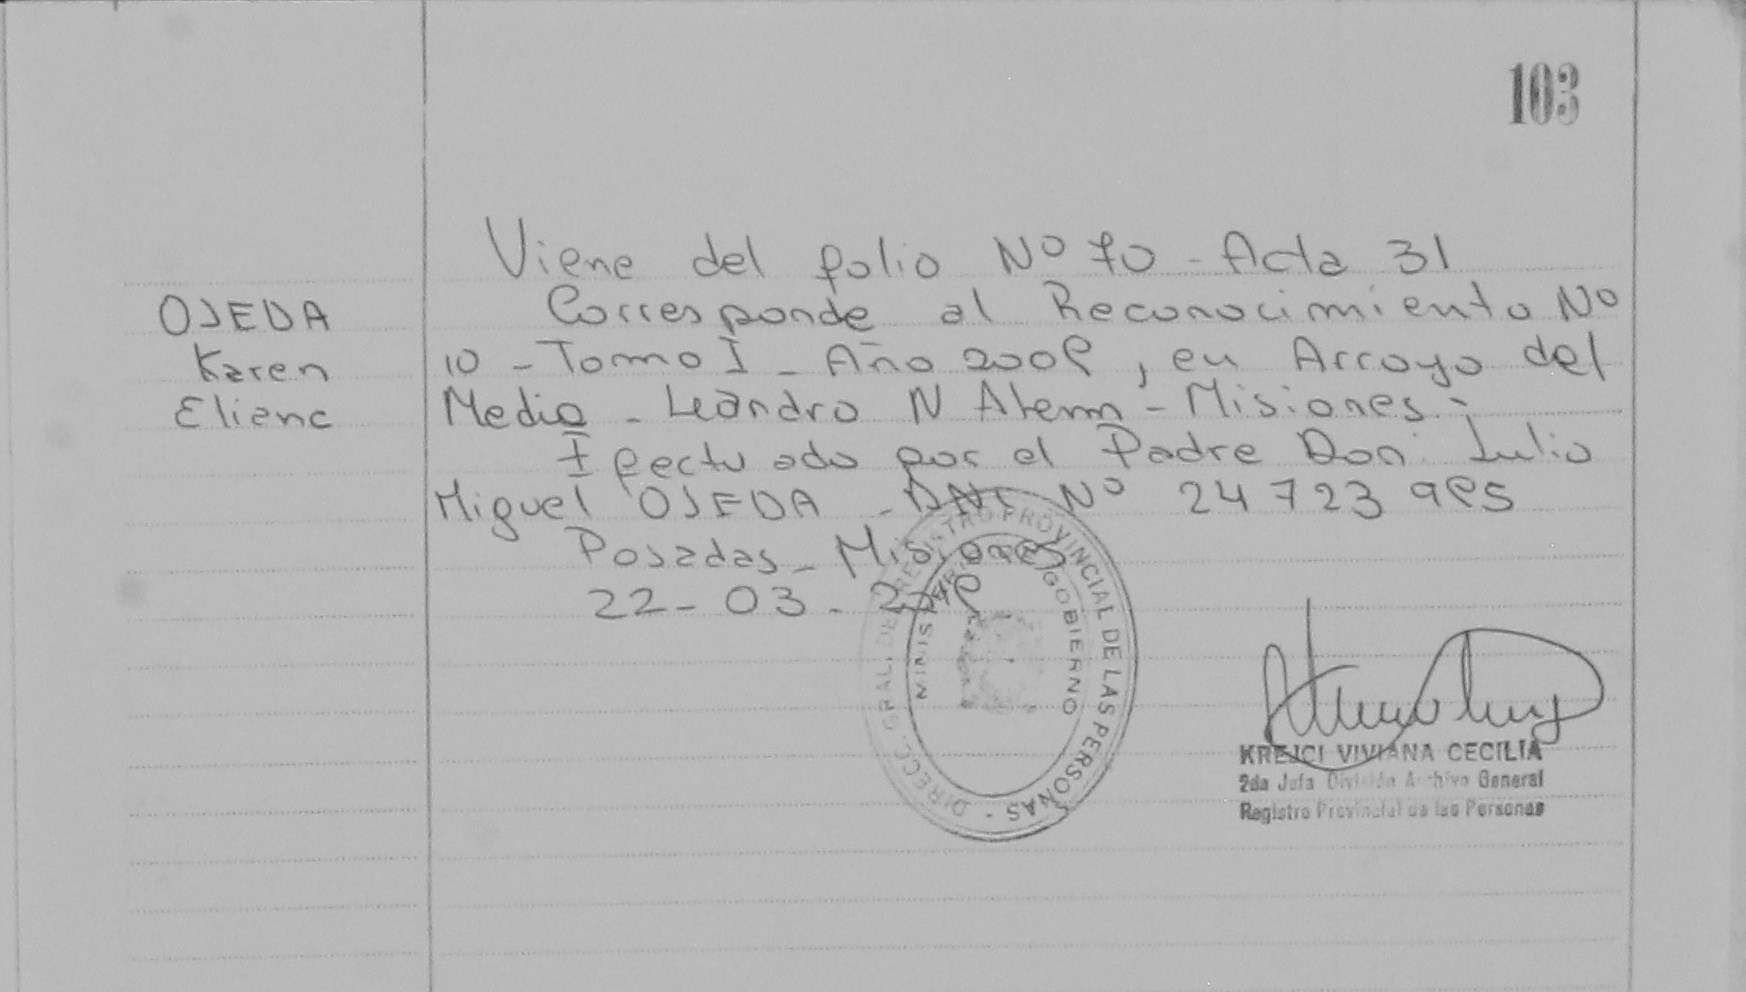 103
Viene del folio Nº 70 - Acta 31
OJEDA
Karen
Eliene
Corresponde al Reconocimiento Nº
10 - Tomo I - Año 2008, en Arroyo del
Medio - Leandro N Alem - Misiones.-
Efectuado por el Padre Don: Julio
Miguel OJEDA - DNI Nº 24 723 985
Posadas - Misiones
22 - 03 -
DIRECC. GRAL. DEL REGISTRO PROVINCIAL DE LAS PERSONAS -
MINISTERIO DE GOBIERNO
KREJCI VIVIANA CECILIA
2da Jefa División Archivo General
Registro Provincial de las Personas